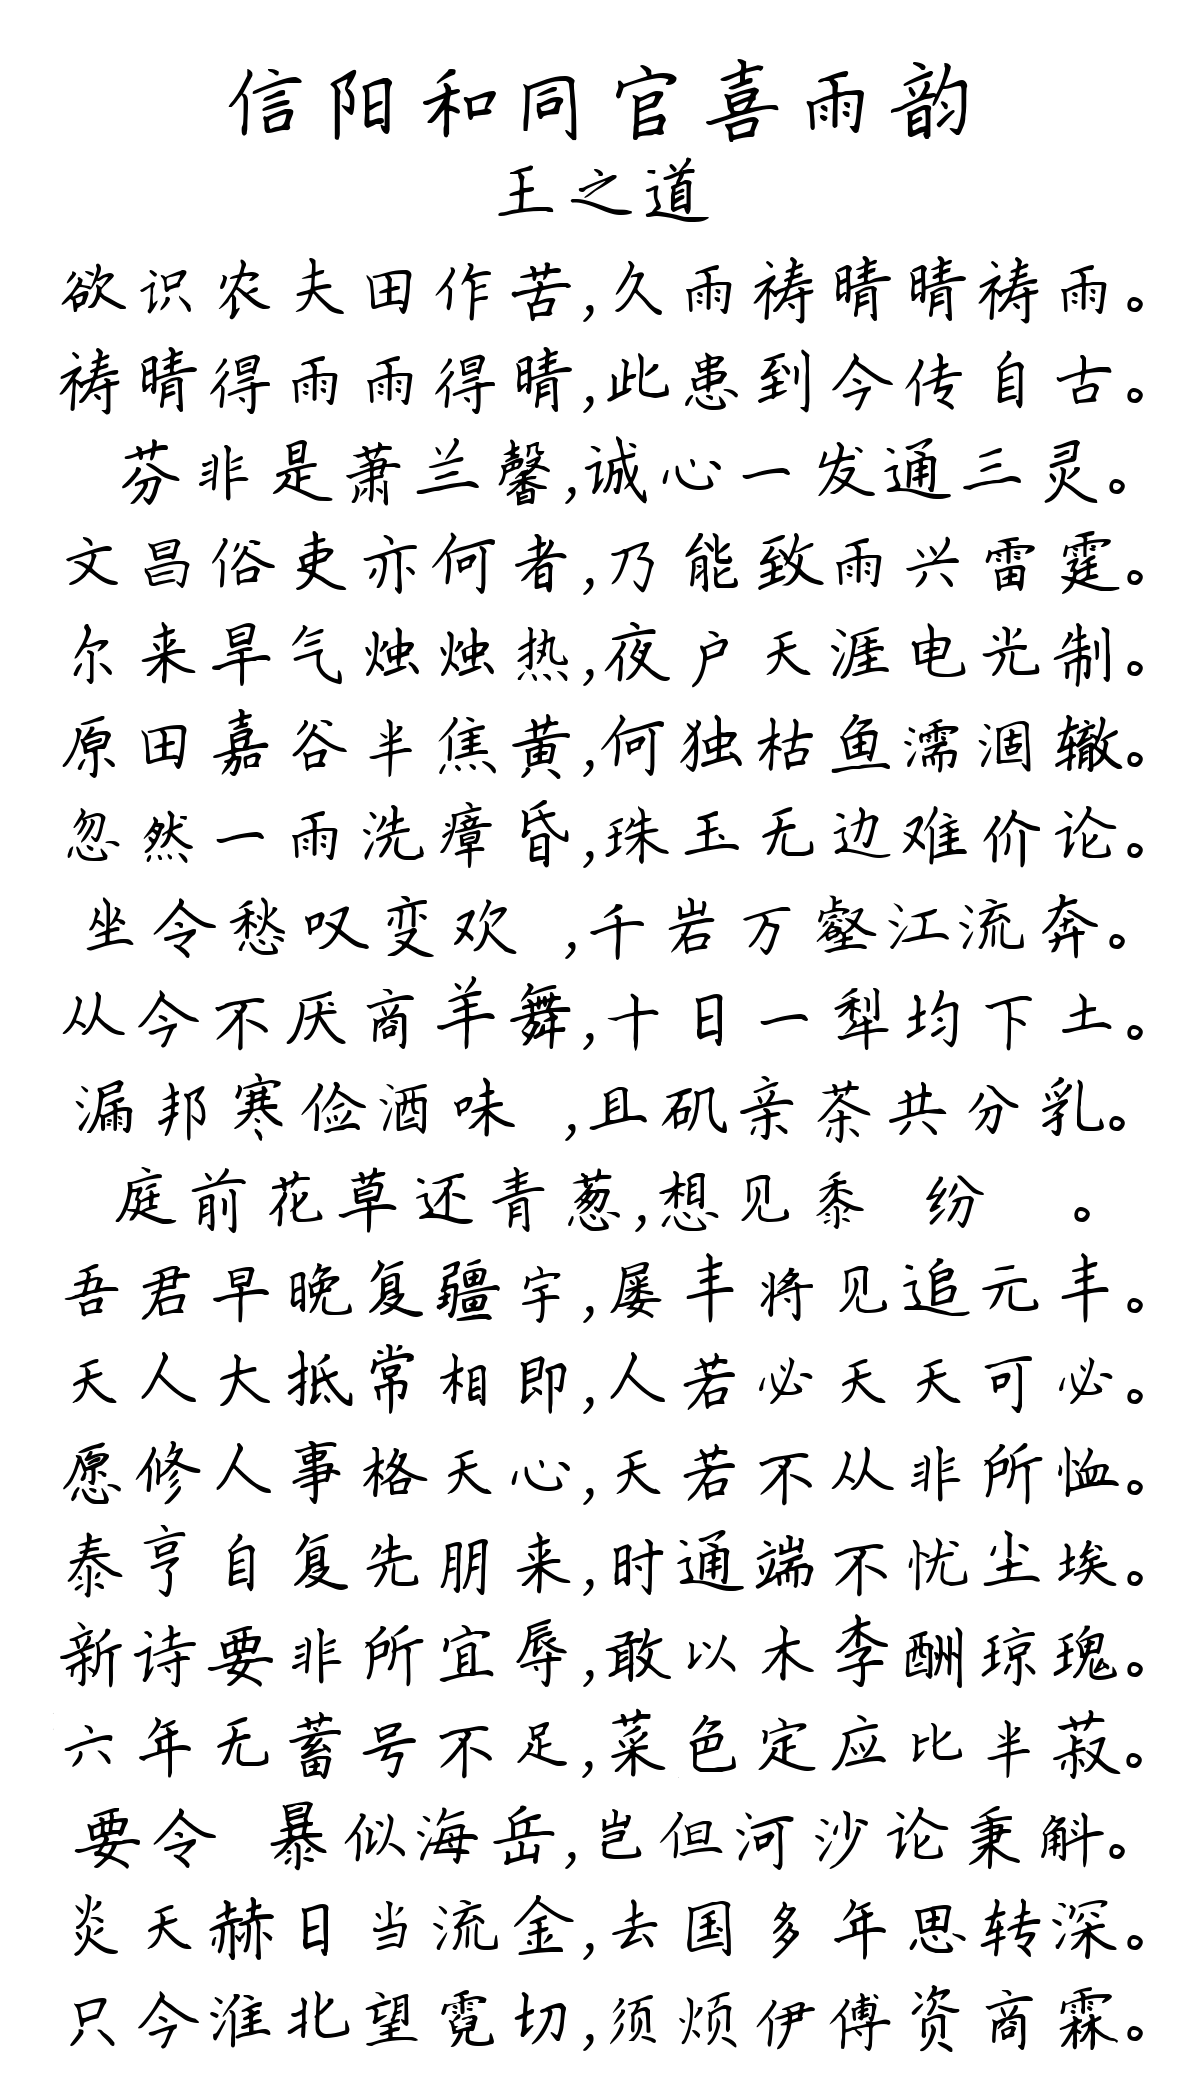 信阳和同官喜雨韵
王之道
欲识农夫田作苦,久雨祷晴晴祷雨。
祷晴得雨雨得晴,此患到今传自古。
芬非是萧兰馨,诚心一发通三灵。
文昌俗吏亦何者,乃能致雨兴雷霆。
尔来旱气烛烛热,夜户天涯电光制。
原田嘉谷半焦黄,何独枯鱼濡涸辙。
忽然一雨洗瘴昏,珠玉无边难价论。
坐令愁叹变欢 ,千岩万壑江流奔。
从今不厌商羊舞,十日一犁均下土。
漏邦寒俭酒味 ,且矶亲茶共分乳。
庭前花草还青葱,想见黍 纷 。
吾君早晚复疆宇,屡丰将见追元丰。
天人大抵常相即,人若必天天可必。
愿修人事格天心,天若不从非所恤。
泰亨自复先朋来,时通端不忧尘埃。
新诗要非所宜辱,敢以木李酬琼瑰。
六年无蓄号不足,菜色定应比半菽。
要令 暴似海岳,岂但河沙论秉斛。
炎天赫日当流金,去国多年思转深。
只今淮北望霓切,须烦伊傅资商霖。